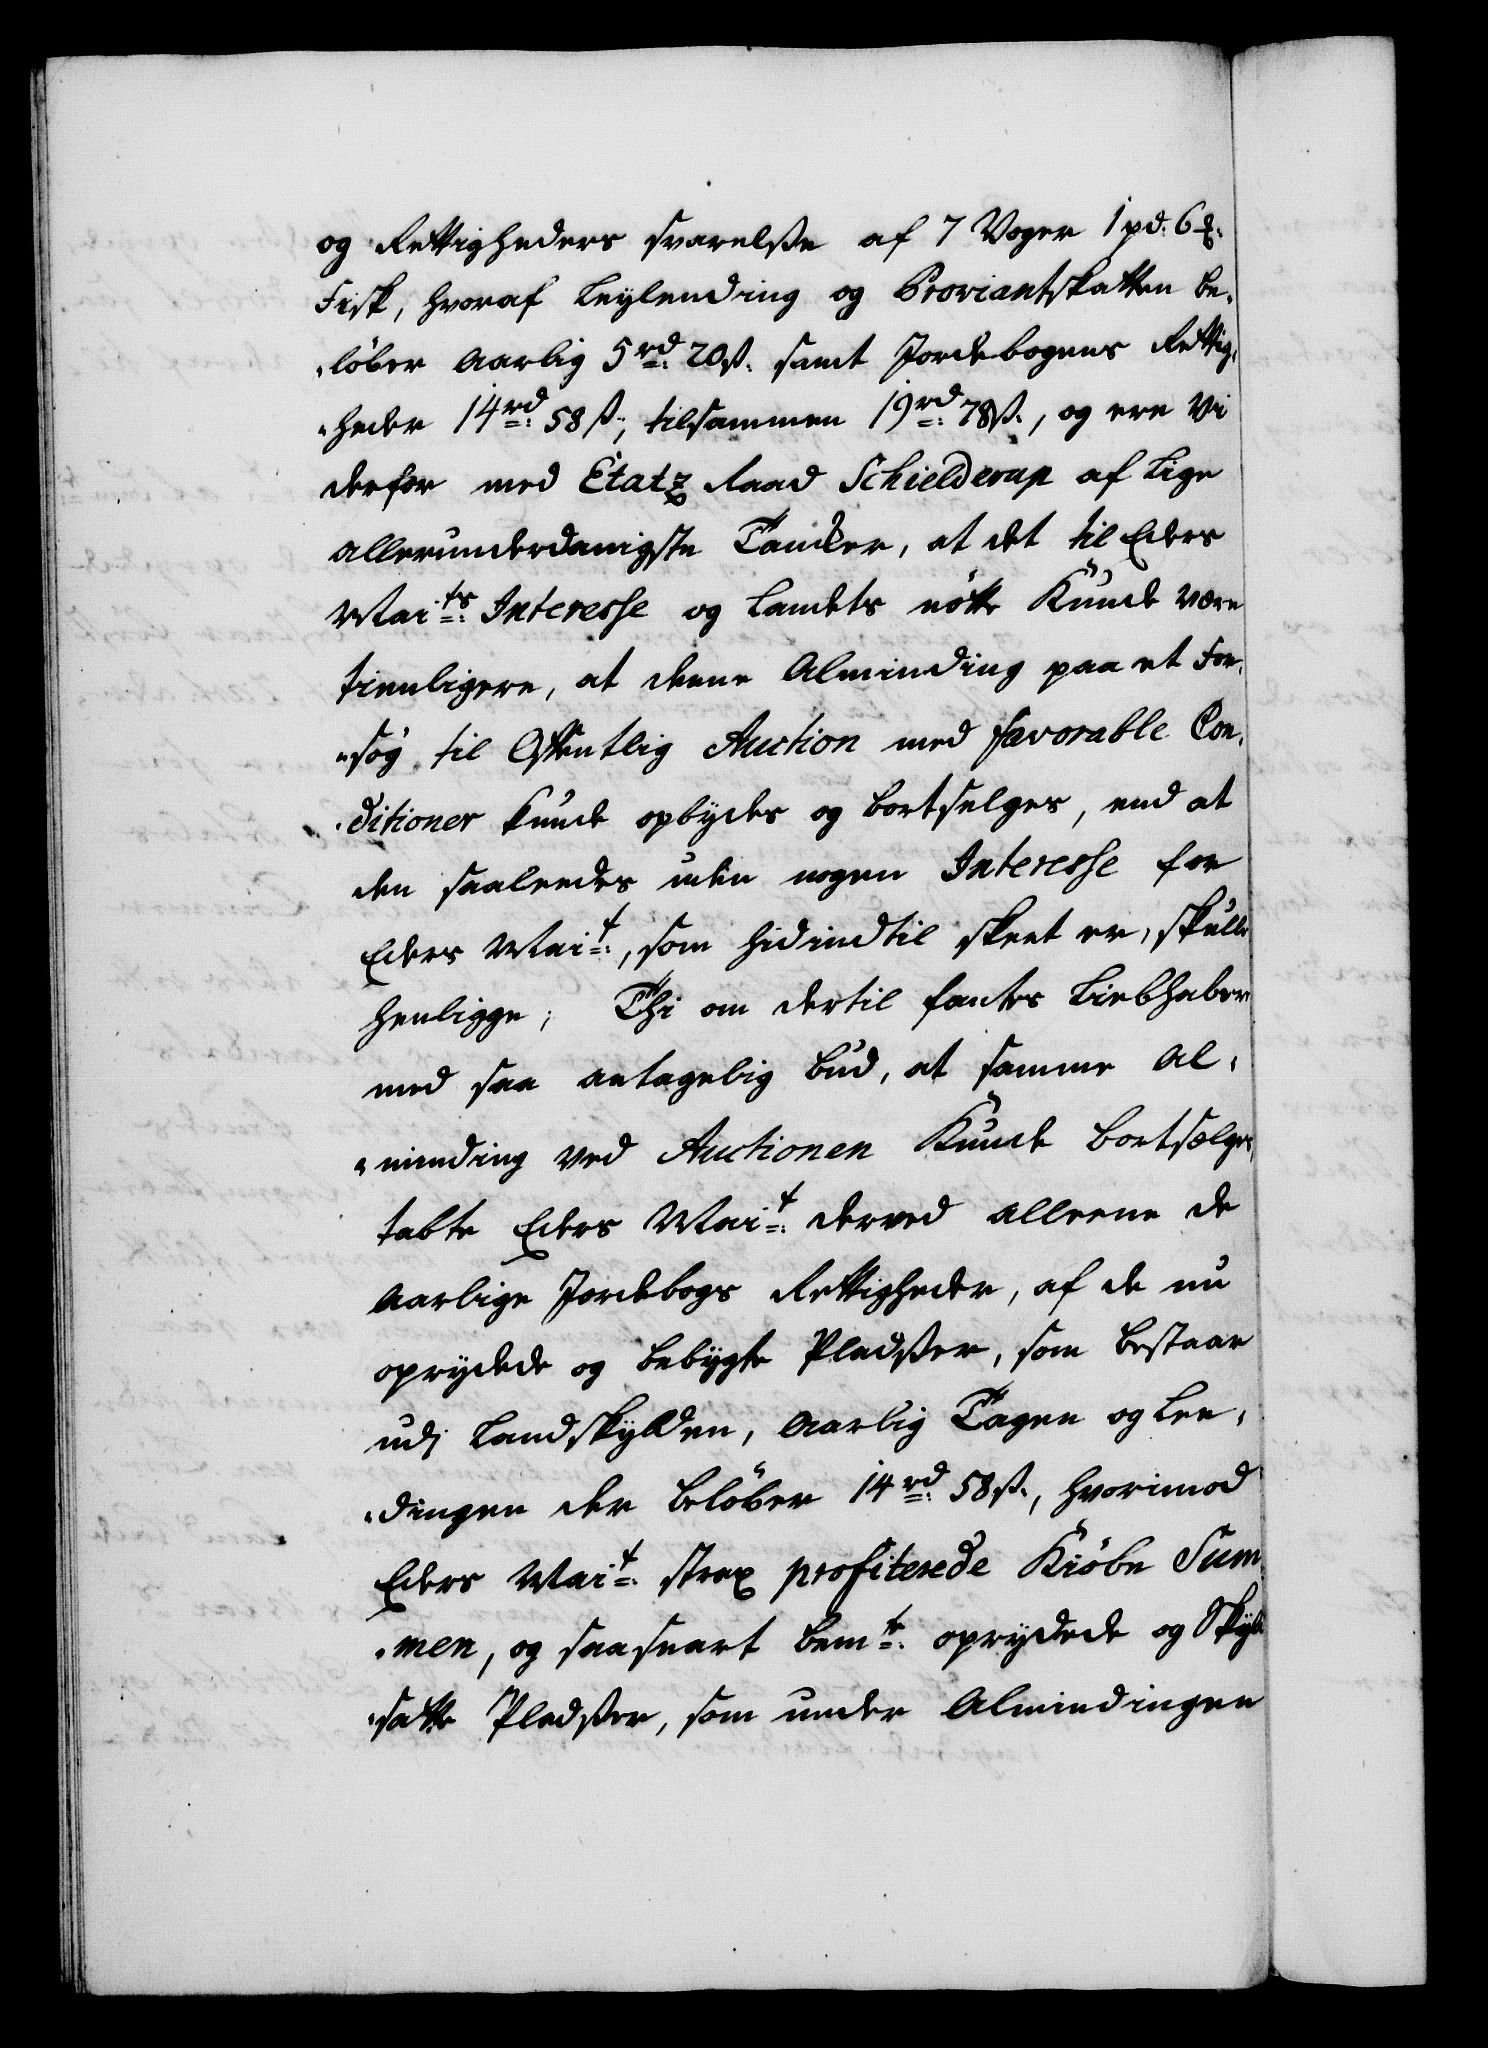 og Rettigheders svarelsse af 7 Voger 1 pd: 6 ℔.
Fisk, hvoraf Leylending og Proviantskatten be„
„løber Aarlig 5 rd: 20 ß. samt Jordebogens Rettig„
„heder 14 rd: 58 ß., tilsammen 19 rd: 78 ß., og ere vi
derfor med Etatz Raad Schielderup af lige
allerunderdanigste Tancker, at det til Eders
Mai:ts Interesse og Landets nötte Kunde være
tienligere, at denne Alminding paa et For„
„søg til Offentlig Auction med favorable Con„
„ditioner kunde opbydes og bortselges, end at
den saaleedes uden nogen Interesse for
Eders Mai:t, som hidindtil skeet er, skulle
henligge; Thi om dertil fantes Liebhabere
med saa antagelig bud, at samme Al„
„minding ved Auctionen Kunde bortsælges,
tabte Eders Mai:t derved alleene de
Aarlige Jordebogs Rettigheder, af de nu
oprydede og bebygte Pladsser, som bestaar
udj Landskylden, Aarlig Tagen og Lee„
„dingen der beløber 14 rd: 58 ß., hvorimod
Eders Mai:t strax profiterede Kiöbe Sum„
„men, og saasnart bem:te oprydede og Skyld
„satte Pladsser, som under Almindingen